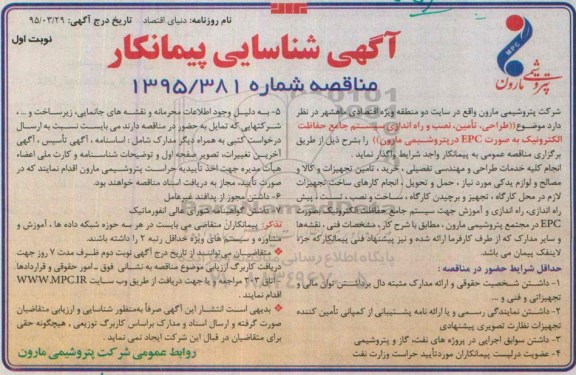 نام روزنامه: دنیای اقتصاد تاریخ درج آگهی: ۹۵/۰۳/۲۹
نوبت اول
آگهی شناسایی پیمانکار
مناقصه شماره ۱۳۹۵/۳۸۱
MPC
پتروشیمی مارون
شرکت پتروشیمی مارون واقع در سایت دو منطقه ویژه اقتصادی ماهشهر در نظر
دارد موضوع ((طراحی، تأمین، نصب و راه اندازی سیستم جامع حفاظت
الکترونیک به صورت EPC درپتروشیمی مارون)) را بشرح ذیل از طریق
برگزاری مناقصه عمومی به پیمانکار واجد شرایط واگذار نماید.
انجام کلیه خدمات طراحی و مهندسی تفصیلی ، خرید ، تامین تجهیزات و کالا و
مصالح و لوازم یدکی مورد نیاز ، حمل و تحویل ، انجام کارهای ساخت تجهیزات
لازم در محل کارگاه ، تجهیز و برچیدن کارگاه ، ساخت و نصب ، تست ، پیش
راه اندازی، راه اندازی و آموزش جهت سیستم جامع حفاظت الکترونیک بصورت
EPC در مجتمع پتروشیمی مارون ، مطابق با شرح کار ، مشخصات فنی ، نقشه‌ها
و سایر مدارک که از طرف کارفرما ارائه شده و نیز پیشنهاد فنی پیمانکار که جزء
لاینفک پیمان می باشد.
حداقل شرایط حضور در مناقصه :
۱- داشتن شخصیت حقوقی و ارائه مدارک مثبته دال برداشتن توان مالی و
تجهیزاتی و فنی و ...
۲- داشتن نمایندگی رسمی و یا ارائه نامه پشتیبانی از کمپانی تأمین کننده
تجهیزات نظارت تصویری پیشنهادی
۳- داشتن سوابق اجرایی در پروژه های نفت، گاز و پتروشیمی
۴- عضویت درلیست پیمانکاران موردتأیید حراست وزارت نفت
۵- به دلیل وجود اطلاعات محرمانه و نقشه های جانمایی، زیرساخت و ... ،
شرکتهایی که تمایل به حضور در مناقصه دارند می بایست نسبت به ارسال
درخواست کتبی به همراه دیگر مدارک شامل : اساسنامه ، آگهی تأسیس ، آگهی
آخرین تغییرات، تصویر صفحه اول و توضیحات شناسنامه و کارت ملی اعضاء
هیأت مدیره جهت اخذ تأییدیه حراست پتروشیمی مارون اقدام نمایند که در
صورت تأیید، مجاز به دریافت اسناد مناقصه خواهند بود.
۶- داشتن مجوز از پدافند غیرعامل
۷- داشتن گواهینامه شورای عالی انفورماتیک
تذکر: پیمانکاران متقاضی می بایست در هر سه حوزه شبکه داده ها ، آموزش و
مشاوره و سیستم های ویژه حداقل رتبه ۲ را داشته باشند.
متقاضیان می توانند از تاریخ درج آگهی نوبت دوم ظرف مدت ۷ روز جهت
دریافت کاربرگ ارزیابی موضوع مناقصه به نشانی فوق ـ امور حقوقی و قراردادها
مراجعه و یا جهت دریافت از طریق وب سایت WWW.MPC.IR
اقدام نمایند .
بدیهی است انتشار این آگهی صرفاً به‌منظور شناسایی و ارزیابی متقاضیان
صورت گرفته و ارسال اسناد و مدارک براساس کاربرگ توزیعی ، هیچگونه حقی
برای متقاضیان در قبال این شرکت ایجاد نمی نماید .
روابط عمومی شرکت پتروشیمی مارون